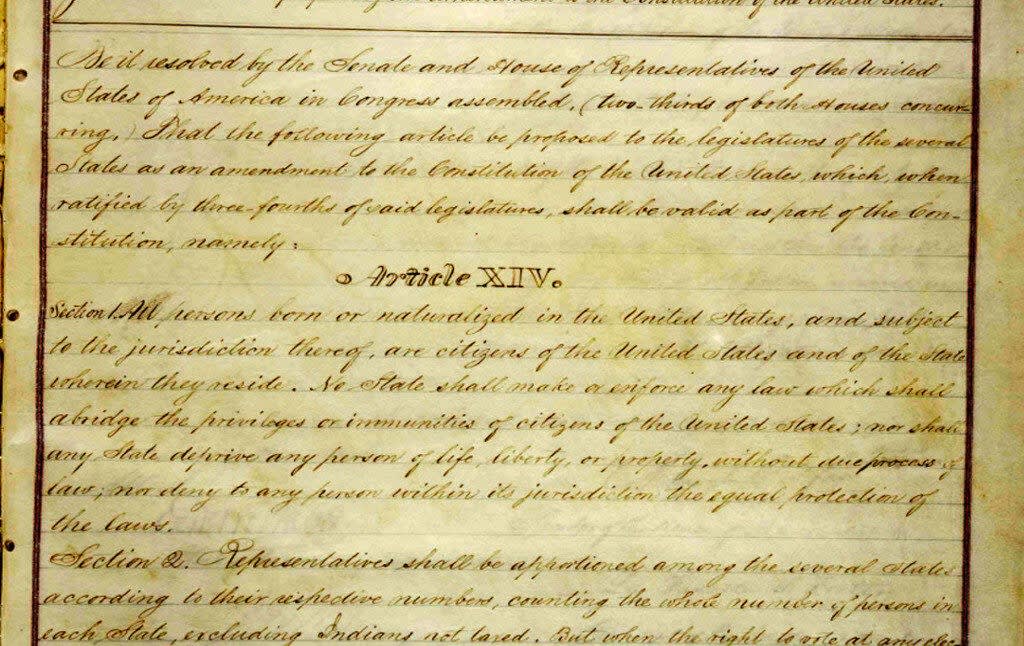 proposing an amendment to the Constitution of the United States.
Be it resolved by the Senate and House of Representatives of the United
States of America in Congress assembled, (two-thirds of both Houses concur-
ring,) That the following article be proposed to the legislatures of the several
States as an amendment to the Constitution of the United States, which, when
ratified by three-fourths of said legislatures, shall be valid as part of the Con-
stitution, namely:
Article XIV.
Section 1. All persons born or naturalized in the United States, and subject
to the jurisdiction thereof, are citizens of the United States and of the State
wherein they reside. No State shall make or enforce any law which shall
abridge the privileges or immunities of citizens of the United States; nor shall
any State deprive any person of life, liberty, or property, without due process of
law; nor deny to any person within its jurisdiction the equal protection of
the laws.
Section 2. Representatives shall be apportioned among the several States
according to their respective numbers, counting the whole number of persons in
each State, excluding Indians not taxed. But when the right to vote at any elec-